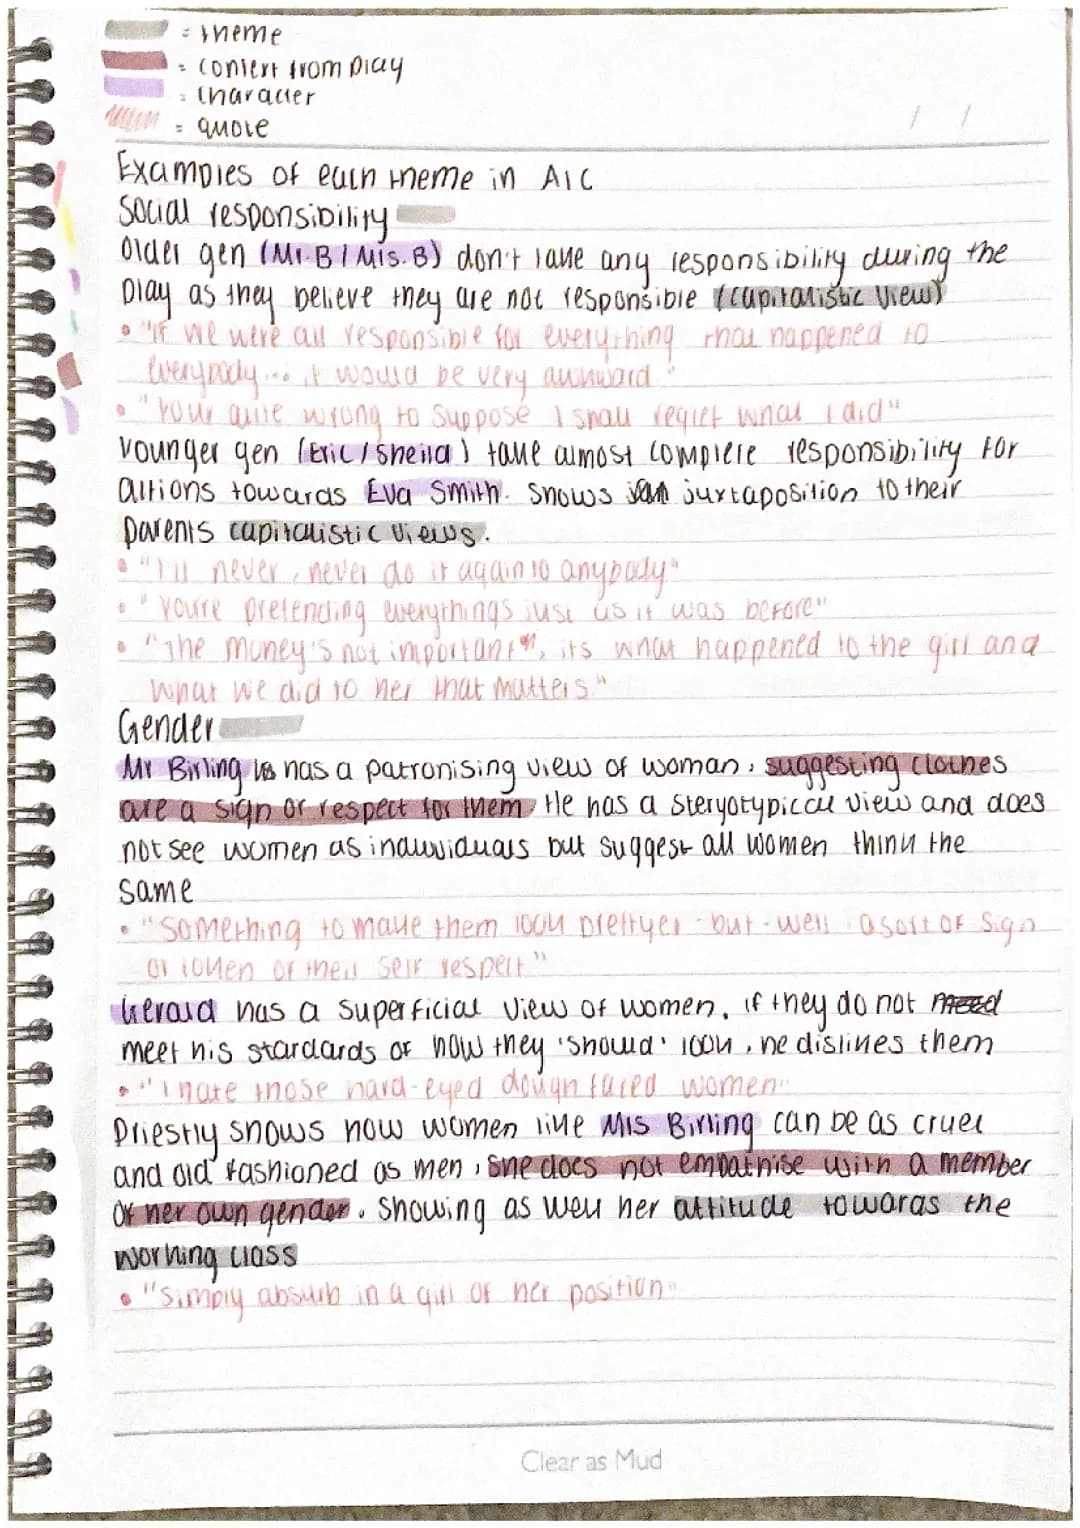 = theme
= context from play
= character
= quote
/ /
Examples of each theme in AIC
Social responsibility
Older gen (Mr.B / Mrs.B) don't take any responsibility during the
play as they believe they are not responsible (capitalistic view)
• "If we were all responsible for everything that happened to
everybody... it would be very awkward."
• "Your quite wrong to suppose I shall regret what I did"
Younger gen (Eric / Sheila) take almost complete responsibility for
actions towards Eva Smith. Shows juxtaposition to their
parents capitalistic views.
• "I'll never, never do it again to anybody"
• "You're pretending everythings just as it was before"
• "The money's not important", its what happened to the girl and
what we did to her that matters."
Gender
Mr Birling has a patronising view of woman, suggesting clothes
are a sign of respect for them. He has a steryotypical view and does
not see women as induviduals but suggest all women think the
same
• "Something to make them look prettyer - but - well - a sort of sign
or token of their self respect"
Gerald has a superficial view of women, if they do not need
meet his stardards of how they 'should' look, he dislikes them
• "I hate those hard-eyed dough faced women"
Priestly shows how women like Mrs Birling can be as cruel
and old fashioned as men, she does not empathise with a member
of her own gender. Showing as well her attitude towards the
working class
• "Simply absurb in a girl of her position"
Clear as Mud